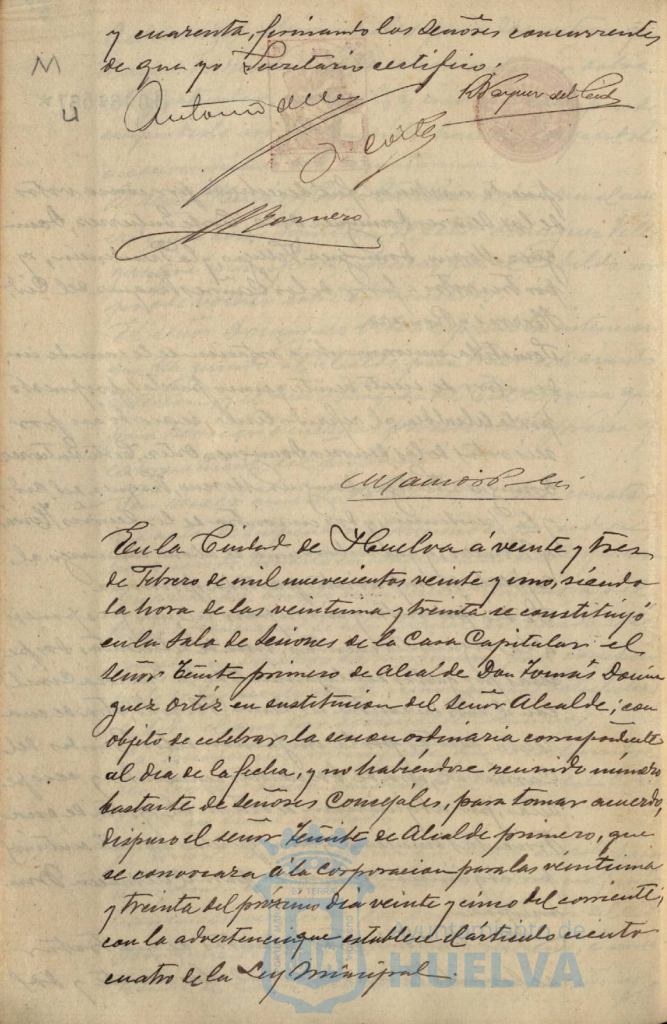 y cuarenta, firmando los señores concurrentes
de que yo Secretario certifico.
Antonio
R Vazquez del Cid
J Coito
M Romero
En la Ciudad de Huelva á veinte y tres
de Febrero de mil nuevecientos veinte y uno, siendo
la hora de las veintiuna y treinta se constituyó
en la Sala de Sesiones de la Casa Capitular el
señor Teñite primero de Alcalde Don Tomás Domin
guez Ortiz en sustitucion del señor Alcalde; con
objeto de celebrar la sesion ordinaria correspondiente
al dia de la fecha, y no habiéndose reunido número
bastante de señores Concejales, para tomar acuerdo,
dispuso el señor Teñite de Alcalde primero, que
se convocara á la Corporacion para las veintiuna
y treinta del próximo dia veinte y cinco del corriente;
con la advertencia que establece el artículo ciento
cuatro de la Ley Municipal.
HUELVA